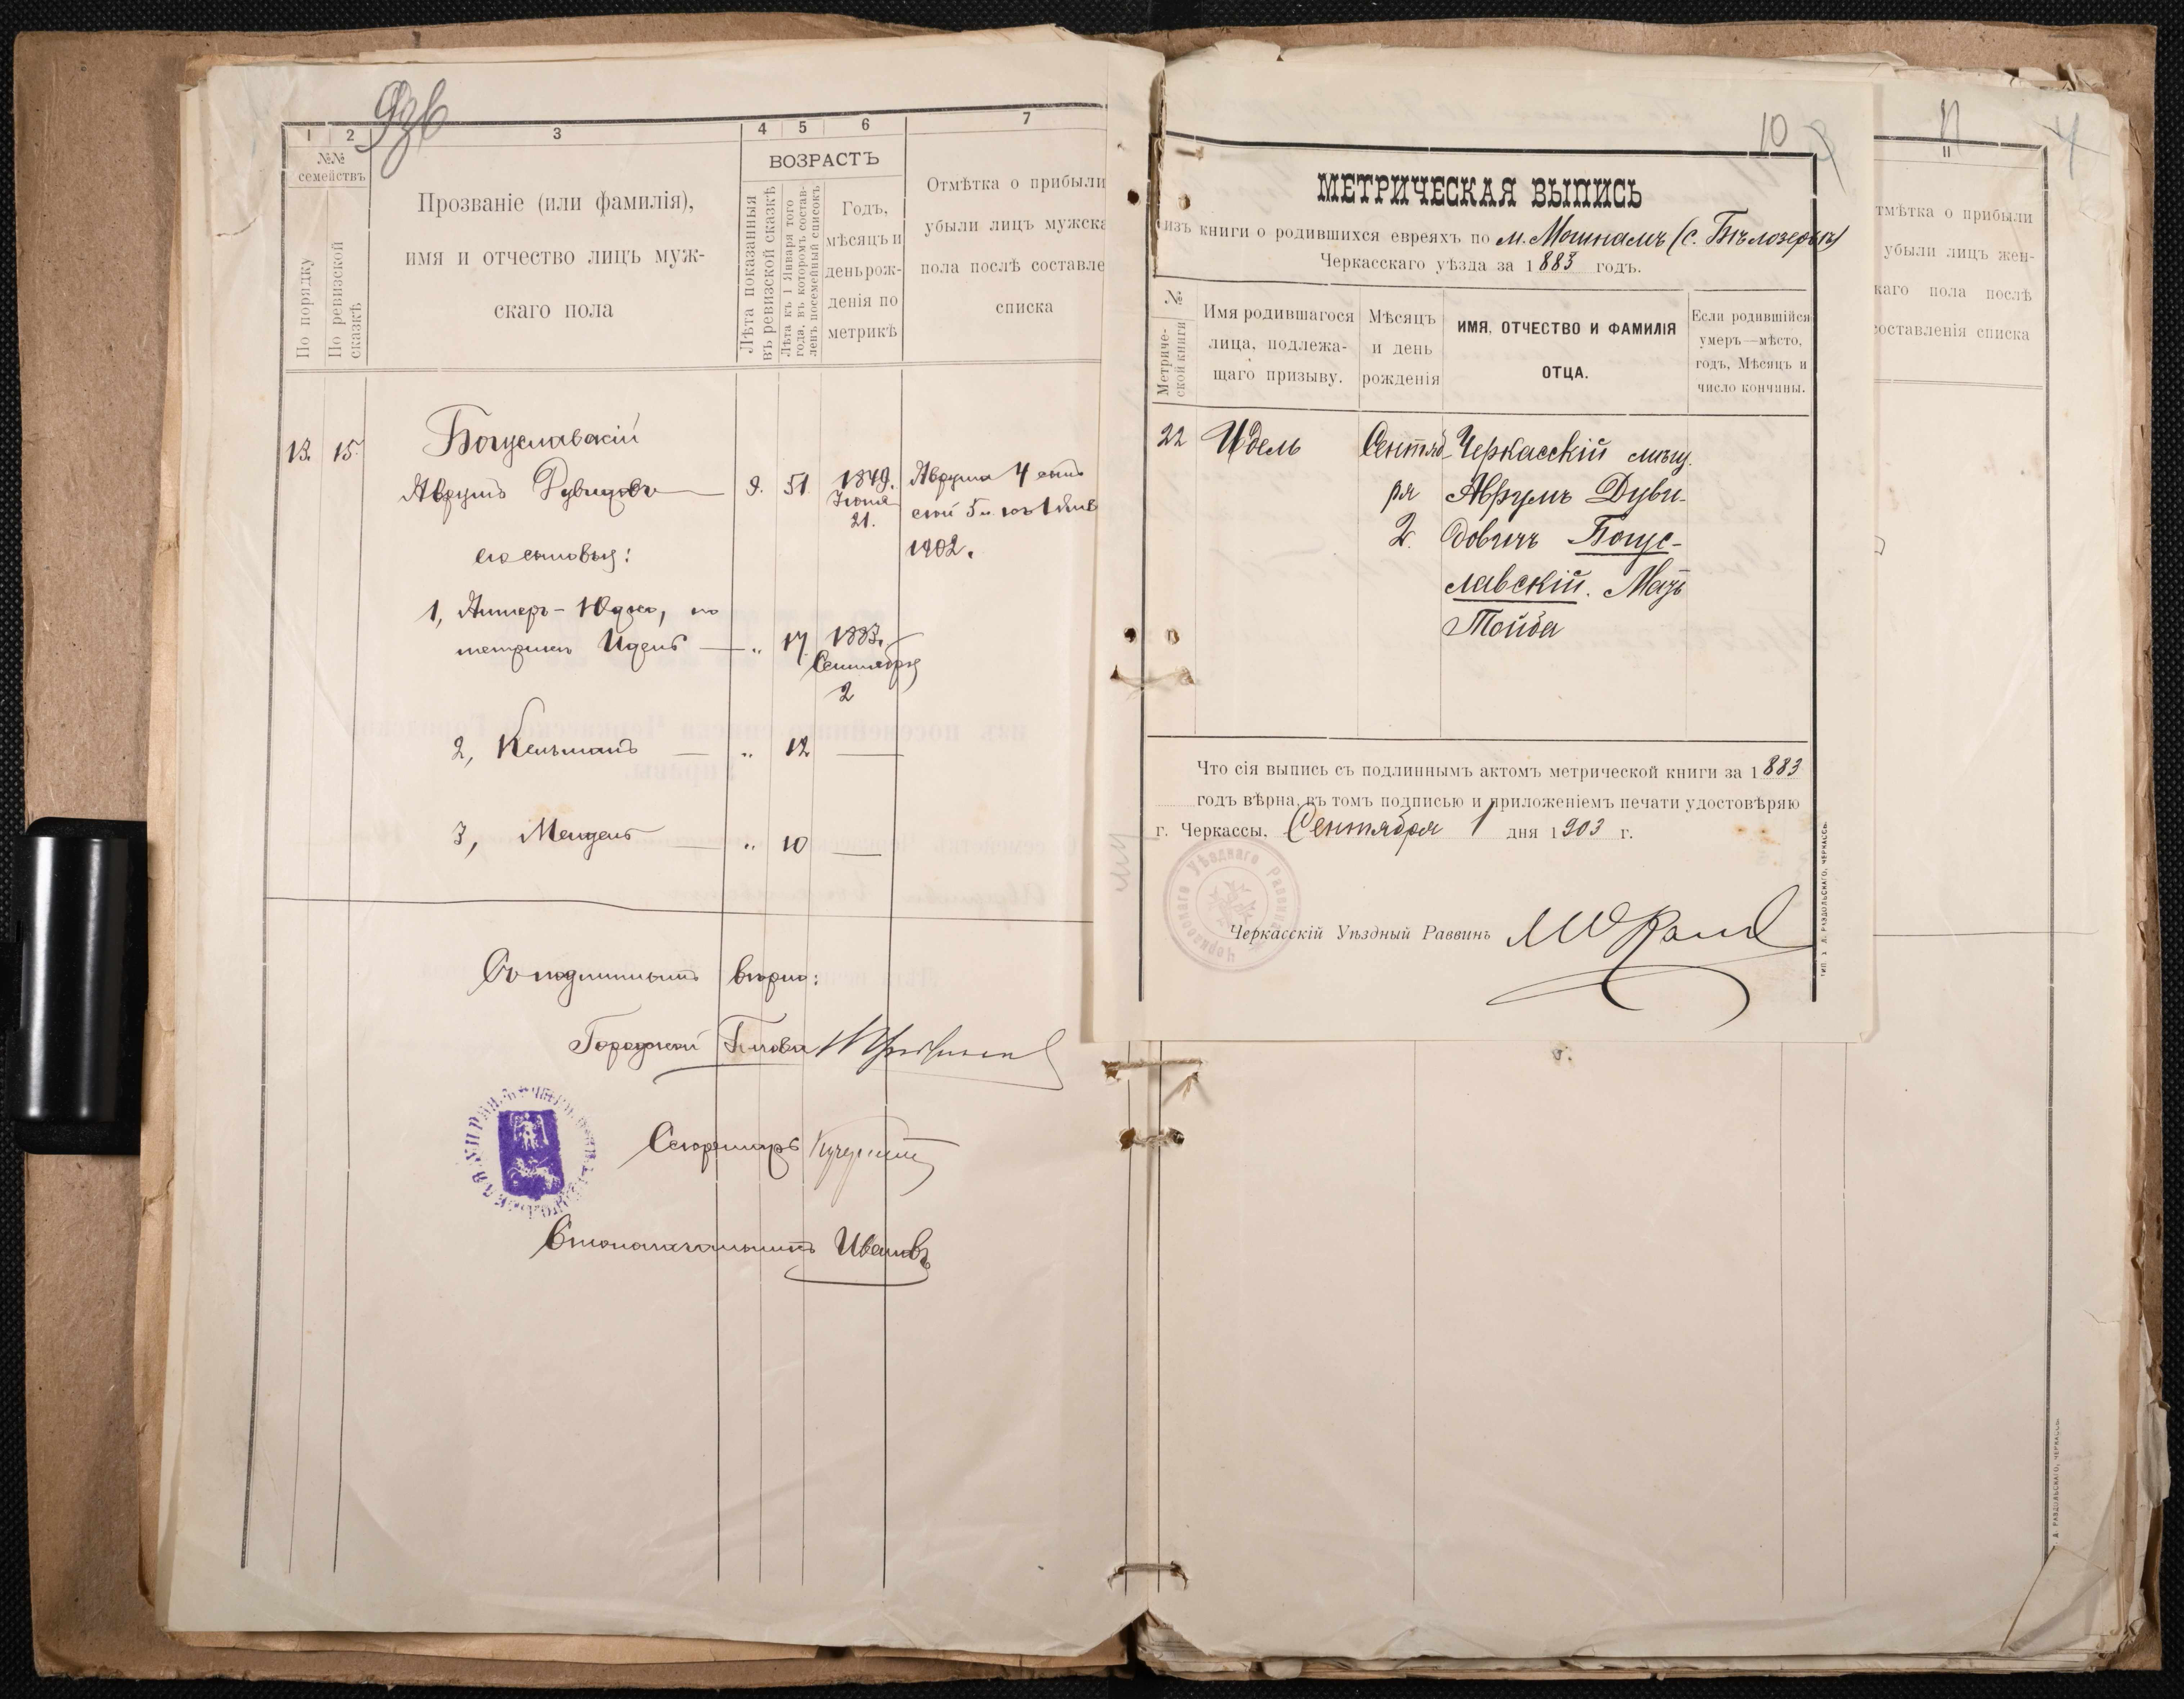 1
2
3
4
5
6
7
№№
семействъ
ВОЗРАСТЪ
По порядку
По ревизской
сказкѣ
Прозваніе (или фамилія),
имя и отчество лицъ муж-
скаго пола
Лѣта показанныя
въ ревизской сказкѣ
Лѣта къ 1 Января того
года, въ которомъ состав-
ленъ посемейный списокъ
Годъ,
мѣсяцъ и
день рож-
денія по
метрикѣ
Отмѣтка о прибыли
убыли лицъ мужска
пола послѣ составле
списка
13. 15. Богуславскій
Аврумъ Дувидовъ 9. 51. 1849.
Іюня
21.
Аврума 4 сынъ
1902.
его сыновья:
1, Аншеръ-Юдко, по
метрикѣ Идель „ 17. 1883.
Сентября
2
2, Кельманъ — „ 12 —
3, Мендель — „ 10 —
Съ подлиннымъ вѣрно:
Городской Голова
Секретарь
Столоначальникъ Ивановъ
10
МЕТРИЧЕСКАЯ ВЫПИСЬ
изъ книги о родившихся евреяхъ по м. Мошнамъ (с. Бѣлозерью)
Черкасскаго уѣзда за 1883 годъ.
№
Метриче-
ской книги
Имя родившагося
лица, подлежа-
щаго призыву.
Мѣсяцъ
и день
рожденія
ИМЯ, ОТЧЕСТВО И ФАМИЛІЯ
ОТЦА.
Если родившійся
умеръ—мѣсто,
годъ, Мѣсяцъ и
число кончины.
22 Идель Сентяб- Черкасскій мѣщ.
ря Аврумъ Дуви-
2. довичъ Богус-
лавскій. Мать
Тойба
Что сія выпись съ подлиннымъ актомъ метрической книги за 1883
годъ вѣрна, въ томъ подписью и приложеніемъ печати удостовѣряю
г. Черкассы, Сентября 1 дня 1903 г.
Черкасскаго Уѣзднаго Раввина
Черкасскій Уѣздный Раввинъ
ТИП. Х. Д. РАЗДОЛЬСКАГО, ЧЕРКАССЫ.
11
4
тмѣтка о прибыли
убыли лиц жен-
каго пола послѣ
составленія списка
Д. РАЗДОЛЬСКАГО, ЧЕРКАССЫ.